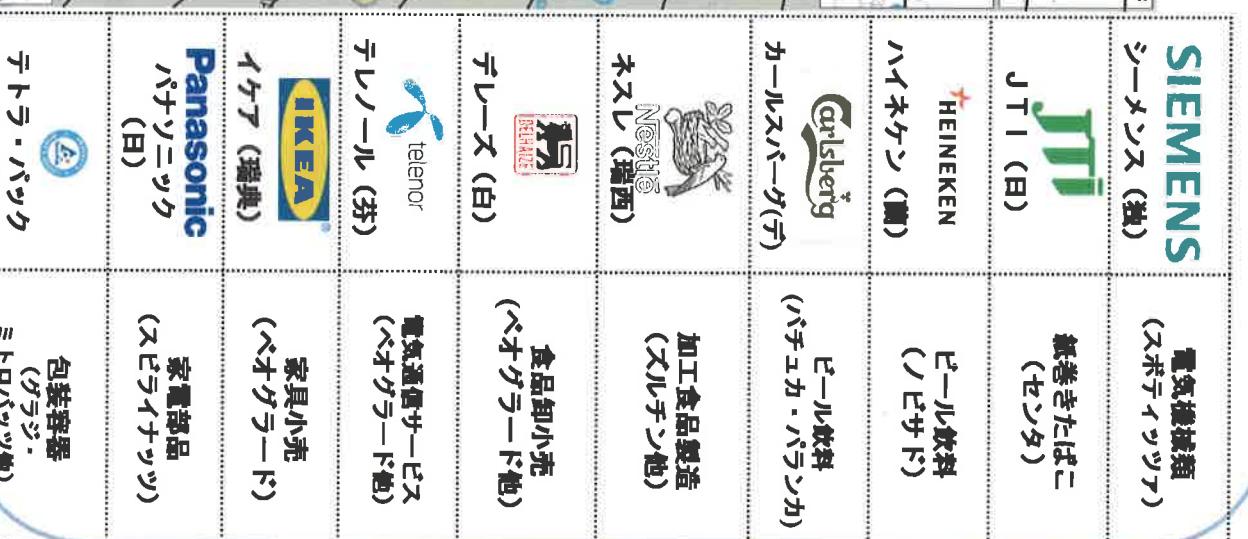 SIEMENS
シーメンス（独）
電気機械類
（スボティッツァ）
JTi
ＪＴＩ（日）
紙巻きたばこ
（センタ）
HEINEKEN
ハイネケン（蘭）
ビール飲料
（ノビサド）
Carlsberg
カールスバーグ(デ)
ビール飲料
（バチュカ・パランカ）
Nestlé
ネスレ（瑞西）
加工食品製造
（ズルチン他）
DELHAIZE
デレーズ（白）
食品卸小売
（ベオグラード他）
telenor
テレノール（芬）
電気通信サービス
（ベオグラード他）
IKEA
イケア（瑞典）
家具小売
（ベオグラード）
Panasonic
パナソニック
（日）
家電部品
（スビライナッツ）
テトラ・パック
包装容器
（グラジ・